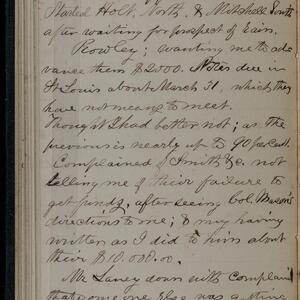 Started Holt, North, & Mitchell South
after waiting for prospect of Eain.
Rowley; wanting me to ad-
vance them $2000. Notes due in
St Louis about March 31, which they
have not means to meet.
Thought I had better not; as the
previous is nearly up to 90 per cent.
Complained of Smith &c. not
telling me of their failure to
get funds, after seeing Col. Mason's
directions to me; & my having
written as I did to him about
their $10.000.00.
Mr Laney down with complaint
that someone else was